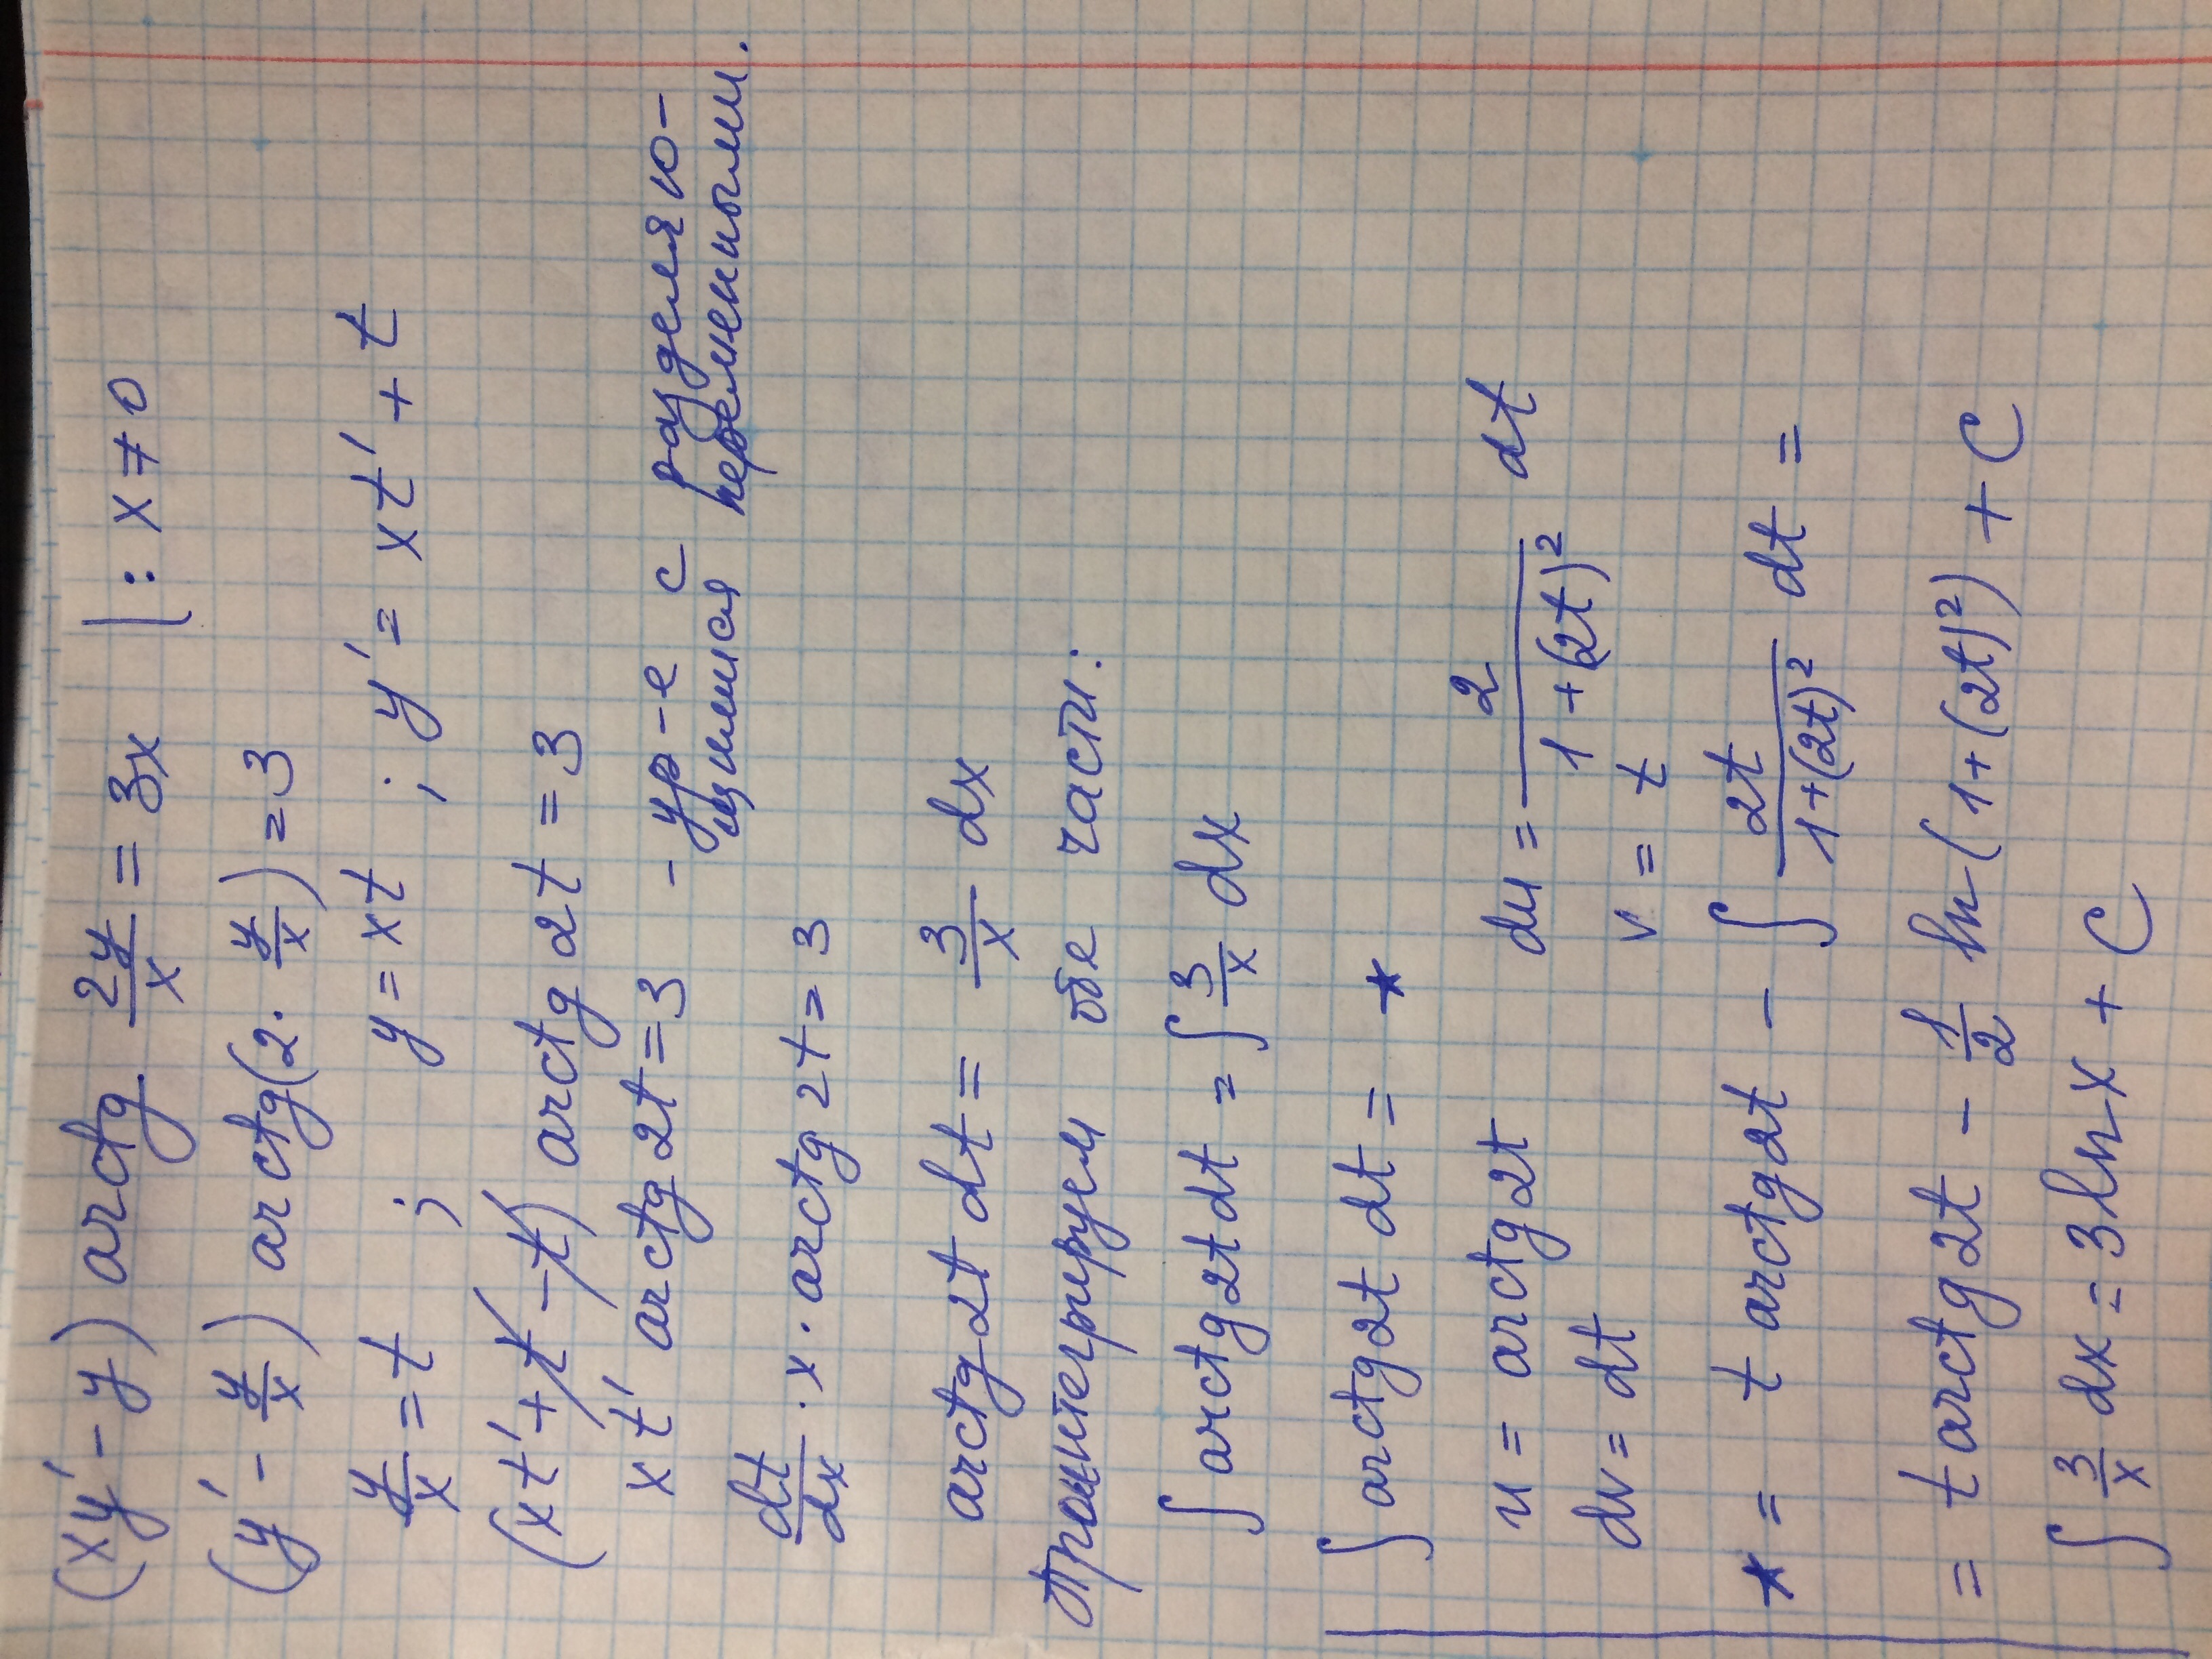 (xy' - y) arctg 2y/x = 3x |: x ≠ 0
(y' - y/x) arctg(2 · y/x) = 3
y/x = t ; y = xt ; y' = xt' + t
(xt' + t - t) arctg 2t = 3
xt' arctg 2t = 3 - ур-е с разделяю-
щимися переменными.
dt/dx · x · arctg 2t = 3
arctg 2t dt = 3/x dx
Проинтегрируем обе части:
∫ arctg 2t dt = ∫ 3/x dx
∫ arctg 2t dt = *
u = arctg 2t du = 2/(1 + (2t)²) dt
dv = dt v = t
* = t arctg 2t - ∫ 2t/(1+(2t)²) dt =
= t arctg 2t - 1/2 ln(1+(2t)²) + C
∫ 3/x dx = 3 ln x + C